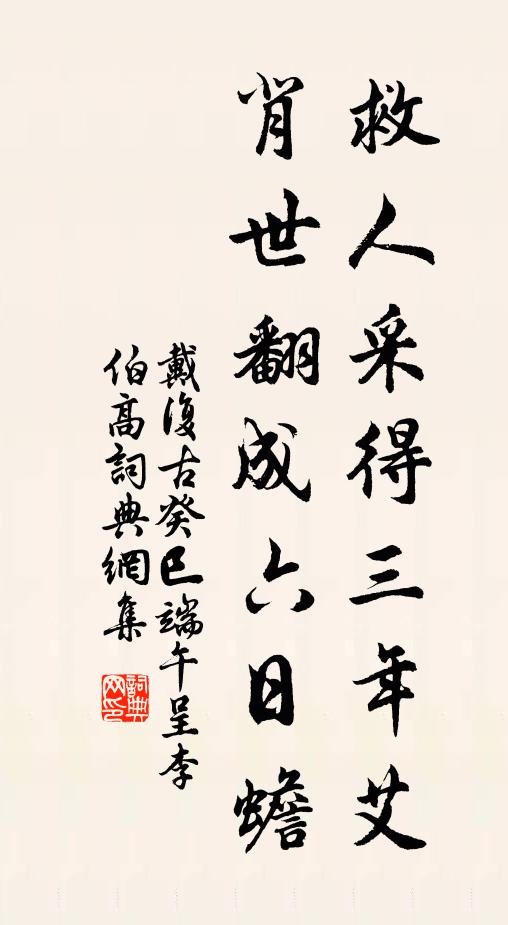 救人采得三年艾
肖世翻成六日蟾
戴復古癸巳端午呈李
伯高詞典網集
詞典网印